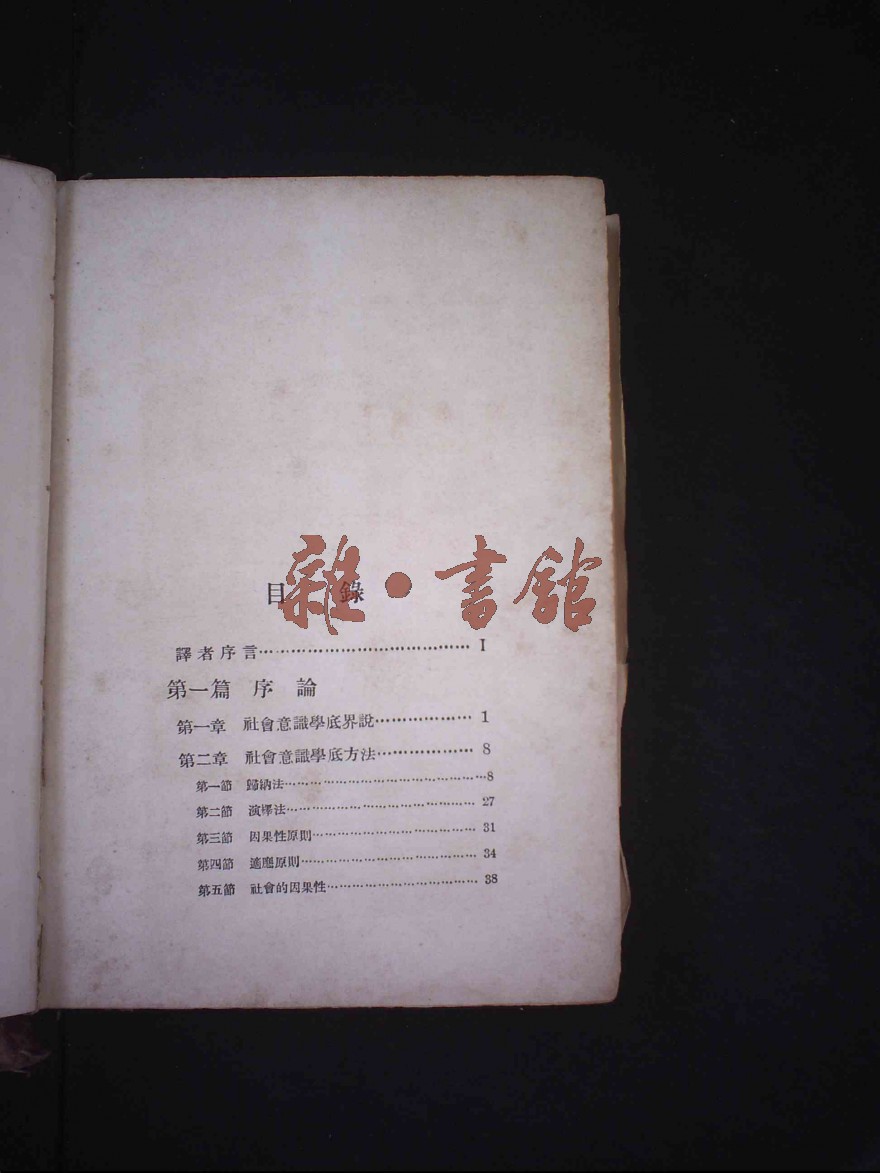 目錄
雜·書館
譯者序言…………………………………I
第一篇 序論
第一章 社會意識學底界說………………1
第二章 社會意識學底方法………………8
第一節 歸納法……………………………8
第二節 演繹法……………………………27
第三節 因果性原則………………………31
第四節 適應原則…………………………34
第五節 社會的因果性……………………38